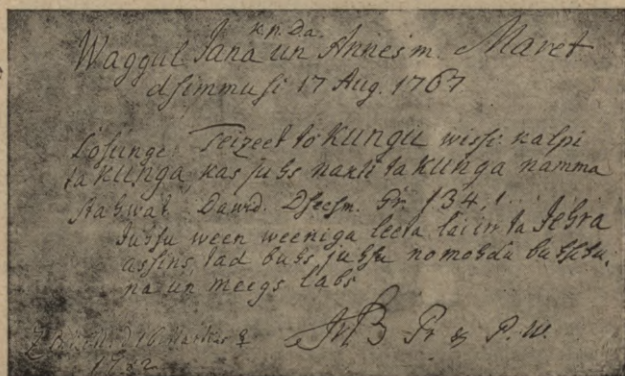 k. n. Da.
Waggul Jana un Annes m. Maret
dsimmusi 17 Aug. 1767
Losunge: Teizeet to KUNGU wissi kalpi
ta KUNGA, kas juhs nakti ta KUNGA namma
stahwat. Dawid. Dseesm. Gr. 134, 1.
Juhsu ween weeniga leeta lai irr ta Jehra
assins, tad buhs juhsu nomohda buhschu-
na un meegs labs
16 Martius
P. W.